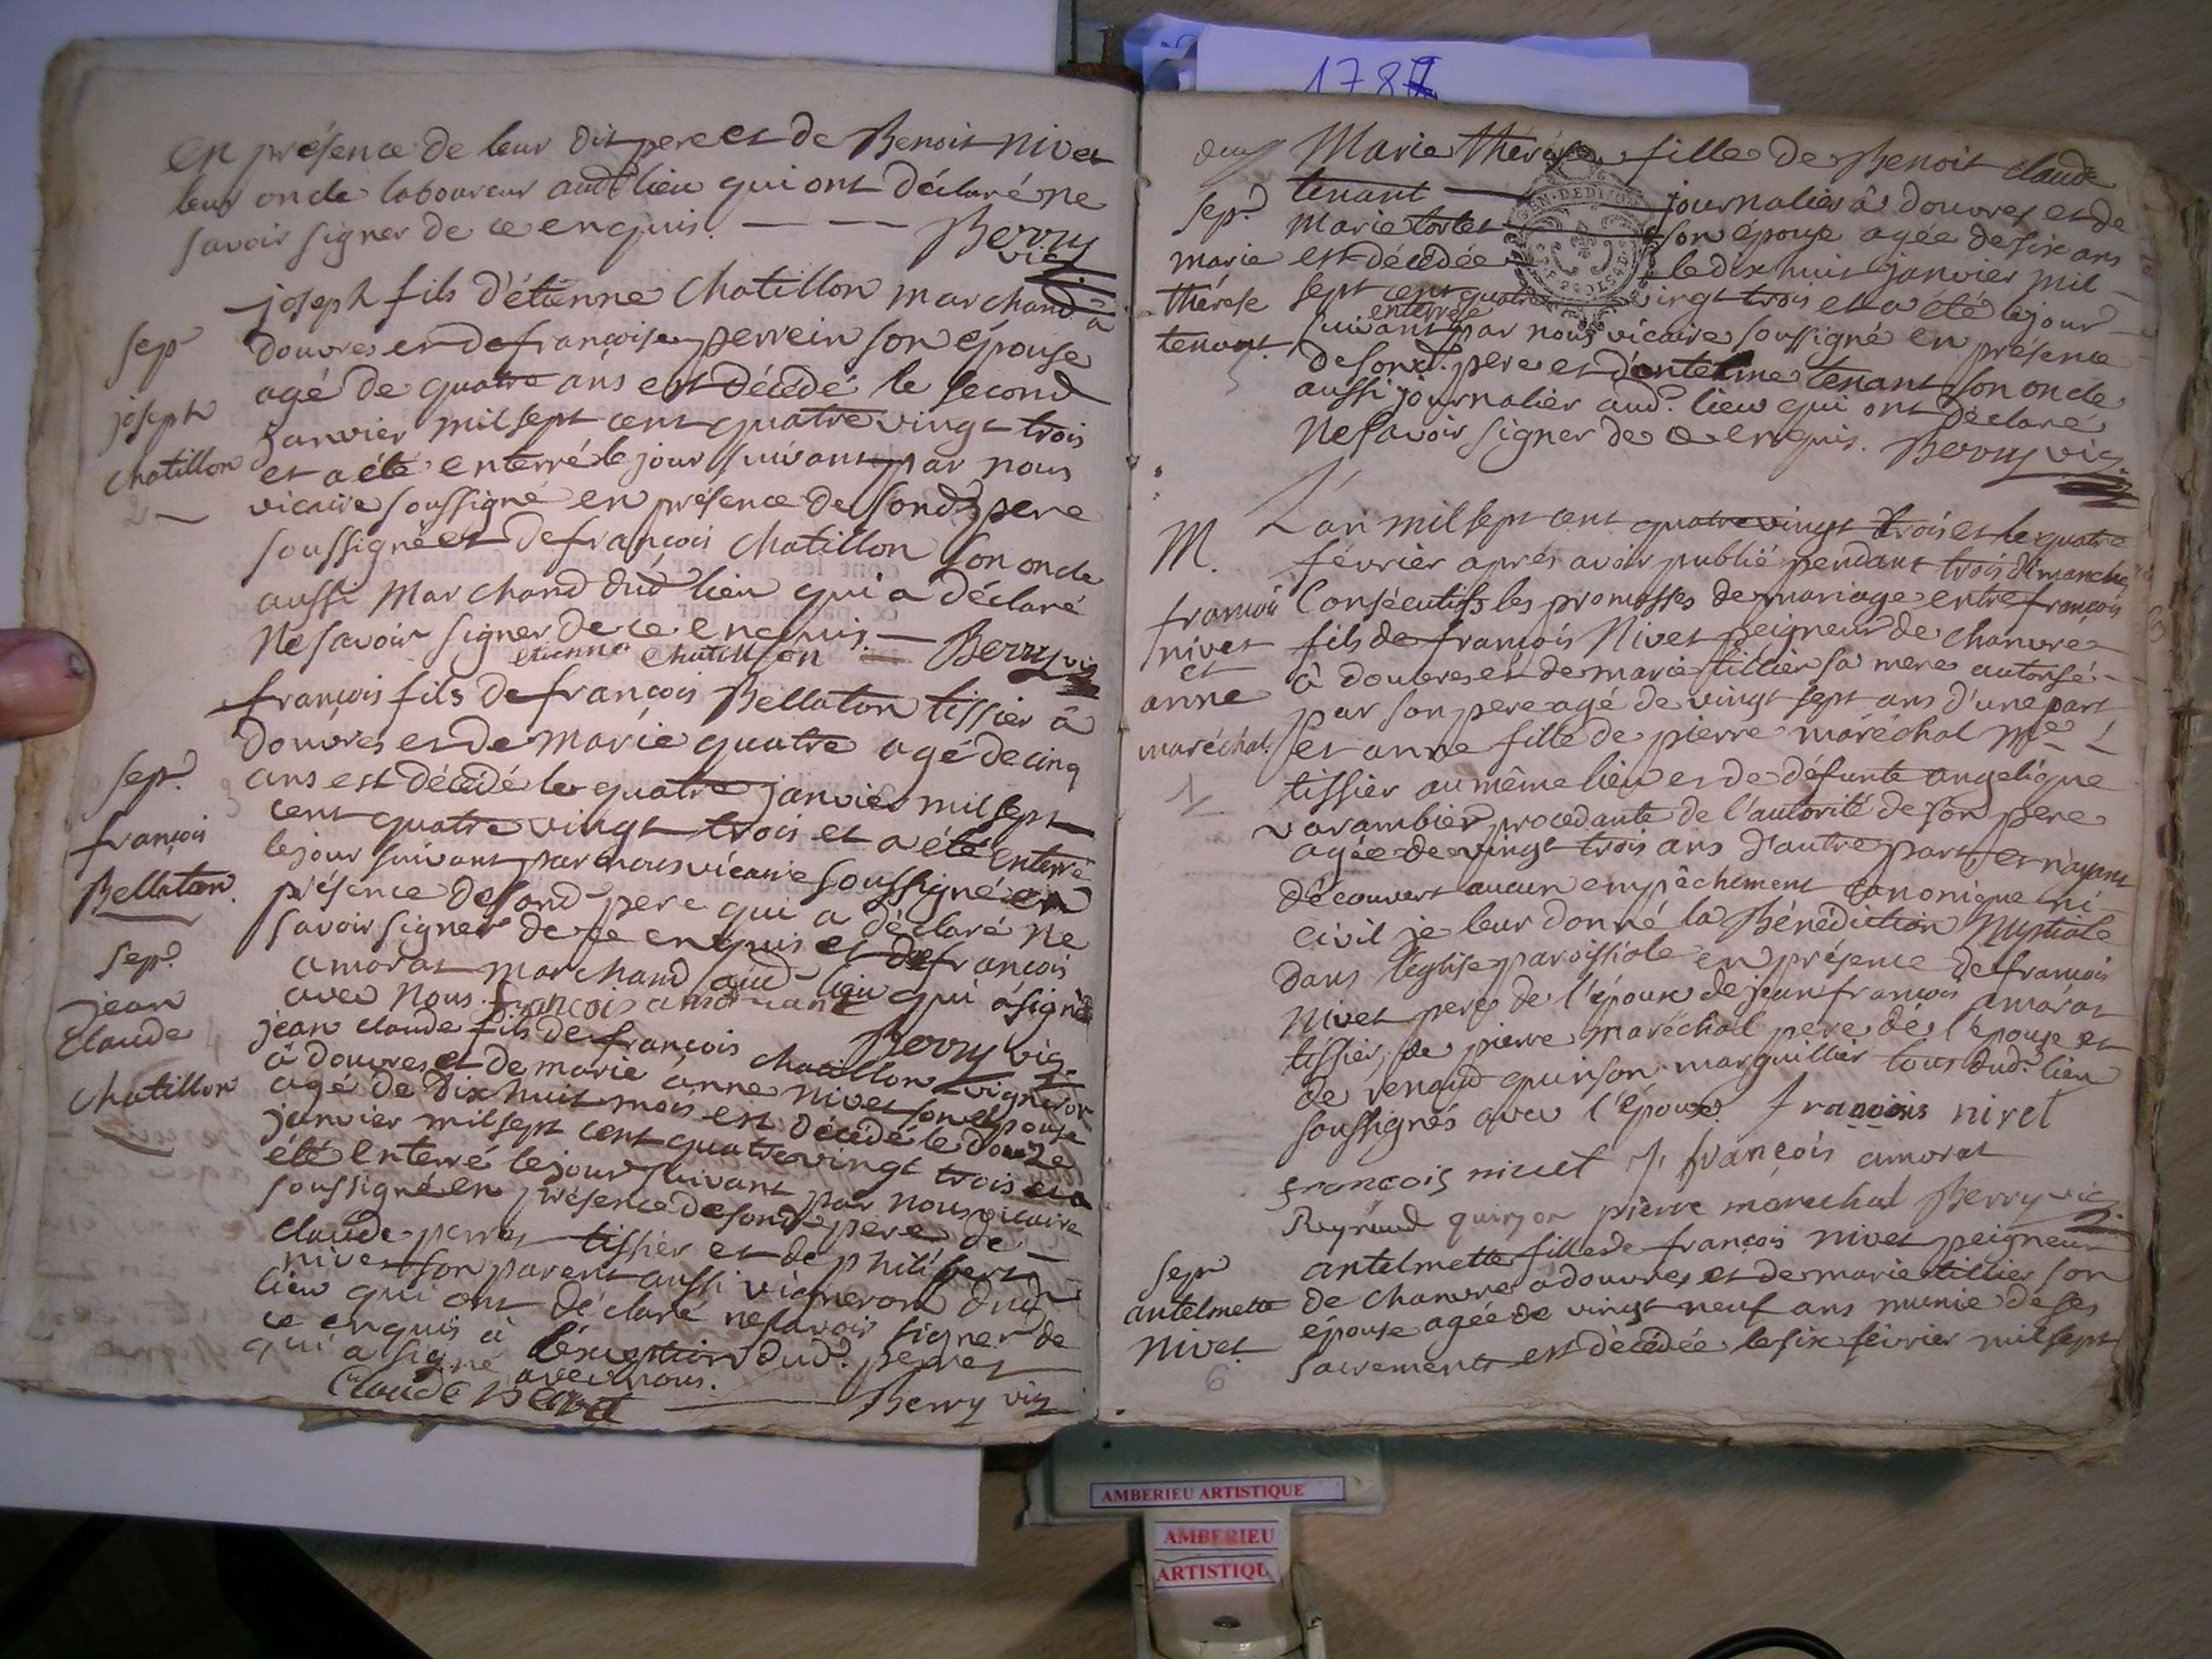 1787
en présence de leur dit pere et de Benoit nivet
leur oncle laboureur audt lieu qui ont déclaré ne
savoir signer de ce enquis. Berry
vic
sepr
joseph
chatillon
2
joseph fils d'étienne chatillon marchand à
douvres et de françoise perrein son épouse
agé de quatre ans est décédé le second
janvier mil sept cent quatre vingt trois
et a été enterré le jour suivant par nous
vicaire soussigné en présence de sond. pere
soussigné et de françois chatillon son oncle
aussi marchand dud. lieu qui a déclaré
ne savoir signer de ce enquis. — Berry vic
etienne chatillon
sepr.
françois
Bellaton.
françois fils de françois Bellaton tissier à
douvres et de marie quatre agé de cinq
ans est décédé le quatre janvier mil sept
cent quatre vingt trois et a été enterré
le jour suivant par nous vicaire soussigné en
présence de sond. pere qui a déclaré ne
savoir signer de ce enquis et de françois
amorat marchand aud. lieu qui a signé
avec nous.
Berry vic.
sepr.
jean
claude
chatillon
jean claude fils de françois chatillon vigneron
à douvres et de marie anne nivet son épouse
agé de dix huit mois est décédé le douze
janvier mil sept cent quatre vingt trois et a
été enterré le jour suivant par nous vicaire
soussigné en présence de sond. pere de
claude perret tissier et de philibert
nivet son parent aussi vigneron dud.
lieu qui ont déclaré ne savoir signer de
ce enquis à l'exception dud. perret
qui a signé avec nous.
Claude Berry vic
sepr.
marie
thérése
tenant.
5
Marie thérése fille de Benoit claude
tenant — journalier à douvres et de
marie tortet son épouse agée de six ans
est décédée le dix huit janvier mil
sept cent quatre vingt trois et a été le jour
enterrée
suivant par nous vicaire soussigné en présence
de sond. pere et d'antelme tenant son oncle
aussi journalier aud. lieu qui ont déclaré
ne savoir signer de ce enquis. Berry vic.
M.
françois
nivet
et
anne
maréchal.
1
L'an mil sept cent quatre vingt trois et le quatre
février aprés avoir publié pendant trois dimanches
consécutifs les promesses de mariage entre françois
fils de françois Nivet peigneur de chanvre
à douvres et de marie tillier sa mere autorisé
par son pere agé de vingt sept ans d'une part
et anne fille de pierre maréchal me
tissier au même lieu et de défunte angelique
varambier procedante de l'autorité de son pere
agée de vingt trois ans d'autre part et n'ayant
découvert aucun empêchement canonique ni
civil je leur donné la Bénédiction Nuptiale
dans l'église paroissiale en présence de françois
nivet pere de l'époux de jean françois amorat
tissier, de pierre maréchal pere de l'epouse et
de renaud quinson marguillier tous dud. lieu
soussignés avec l'époux. françois nivet
françois nivet J. françois amorat
Reynaud quinson pierre marechal Berry vic.
sepr
antelmette
nivet.
6
antelmette fille de françois nivet peigneur
de chanvre à douvres et de marie tillier son
épouse agée de vingt neuf ans munie de ses
sacrements est décédée le six février mil sept
AMBERIEU ARTISTIQUE
AMBERIEU
ARTISTIQU